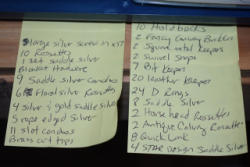 5 large silver screw in KST
10 Rosetts
1 set saddle silver
Blanket Hardware
9 Saddle silver Conchos
6 Hand silver Rosetts
4 silver & gold saddle silver
5 rope edged silver
11 slot conchos
Brass cut tips
10 Holdbacks
2 Fancy Conway Buckles
2 Squared metal Keepers
2 Swivel Snaps
7 Bit Keepers
20 leather Keeper
24 D Rings
8 Saddle Silver
2 Horse head Rosettes
2 Antique Colony Rosettes
8 Quick Link
4 STAR Design Saddle Silver